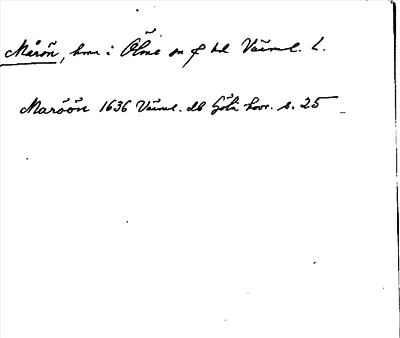 Mårön, hmn i Ölme sn o hd Värml. l.
Maröön 1636 Värml. db Göta hovr. s. 25